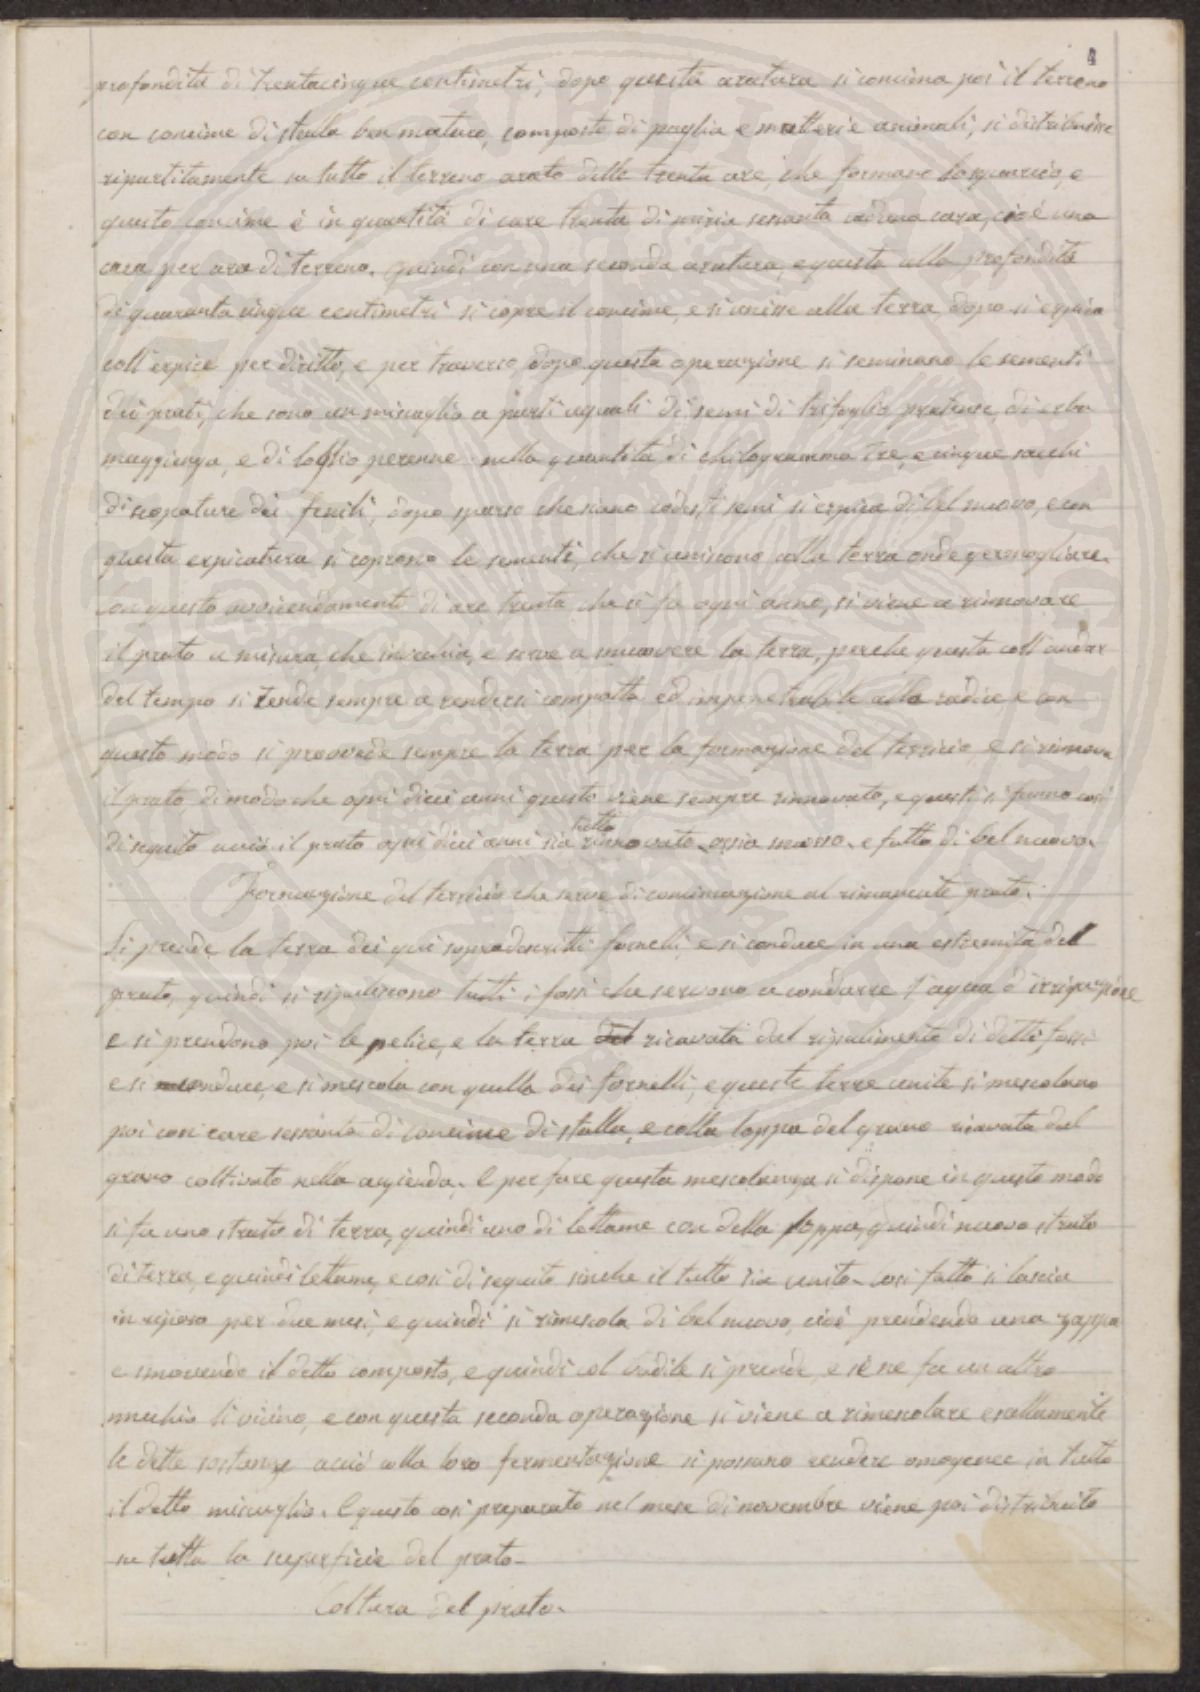 4
profondità di trentacinque centimetri, dopo questa aratura si concima poi il terreno
con concime di stalla ben maturo, composto di paglia e matterie animali, si distribuisse
ripartitamente su tutto il terreno arato delle trenta are, che formano lo squarcio, e
questo concime è in quantità di care trenta di miria sessanta caduna cara, cioè una
cara per ara di terreno. quindi con una seconda aratura, e questa alla profondità
di quaranta cinque centimetri si copre il concime, e si unisse alla terra dopo si erpica
coll'erpice per diritto, e per traverso dopo questa operazione si seminano le sementi
dei prati, che sono un miscuglio a parti uguali di semi di trifoglio pratense, di erba
maggienga, e di loglio perenne nella quantità di chilogramma tre, e cinque sacchi
di scopature dei fenili, dopo sparso che siano codesti semi si erpica di bel nuovo, e con
questa erpicatura si coprono le sementi, che si uniscono colla terra onde germogliare.
Con questo avvicendamento di are trenta che si fa ogni anno, si viene a rinnovare
il prato a misura, che invechia, e serve a muovere la terra, perchè questa coll'andar
del tempo si tende sempre a rendersi compatta ed impenetrabile alla radice e con
questo modo si provvede sempre la terra per la formazione del terricio, e si rinnova
il prato, di modo che ogni dieci anni questo viene sempre rinnovato, e questi si fanno così
di seguito acciò il prato ogni dieci anni sia tutto rinnovato, ossia smosso. e fatto di bel nuovo.
Formazione del terricio che serve di concimazione al rimanente prato.
Si prende la terra dei qui sopradescritti fornelli, e si conduce in una estremità del
prato, quindi si ripuliscono tutti i fossi che servono a condurre l'aqua d'irrigazione
e si prendono poi le pelice, e la terra del ricavata dal ripulimento di detti fossi
e si conduce, e si mescola con quella dei fornelli, e queste terre unite si mescolano
poi con care sessanta di concime di stalla, e colla loppa del grano ricavata dal
grano coltivato nella azienda. E per fare questa mescolanza si dispone in questo modo
si fa uno strato di terra, quindi uno di lettame con della loppa, quindi nuovo strato
di terra, e quindi lettame, e così di seguito sinche il tutto sia unito. Così fatto si lascia
in riposo per due mesi, e quindi si rimescola di bel nuovo, cioè prendendo una zappa
e smovendo il detto composto, e quindi col badile si prende e se ne fa un altro
muchio lì vicino, e con questa seconda operazione si viene a rimescolare esattamente
le dette sostanze acciò colla loro fermentazione si possano rendere omogenee in tutto
il detto miscuglio. E questo così preparato nel mese di novembre viene poi distribuito
su tutta la superficie del prato.
Coltura del prato.